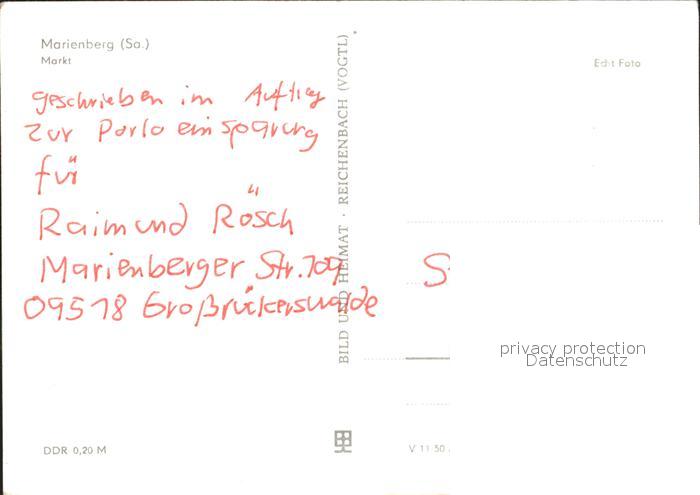 Marienberg (Sa.)
Markt
Echt Foto
geschrieben im Auftrag
zur Portoeinsparung
für
Raimund Rösch
Marienberger Str. 109
09518 Großrückerswalde
BILD UND HEIMAT · REICHENBACH (VOGTL)
privacy protection
Datenschutz
DDR 0,20 M
V 11 50